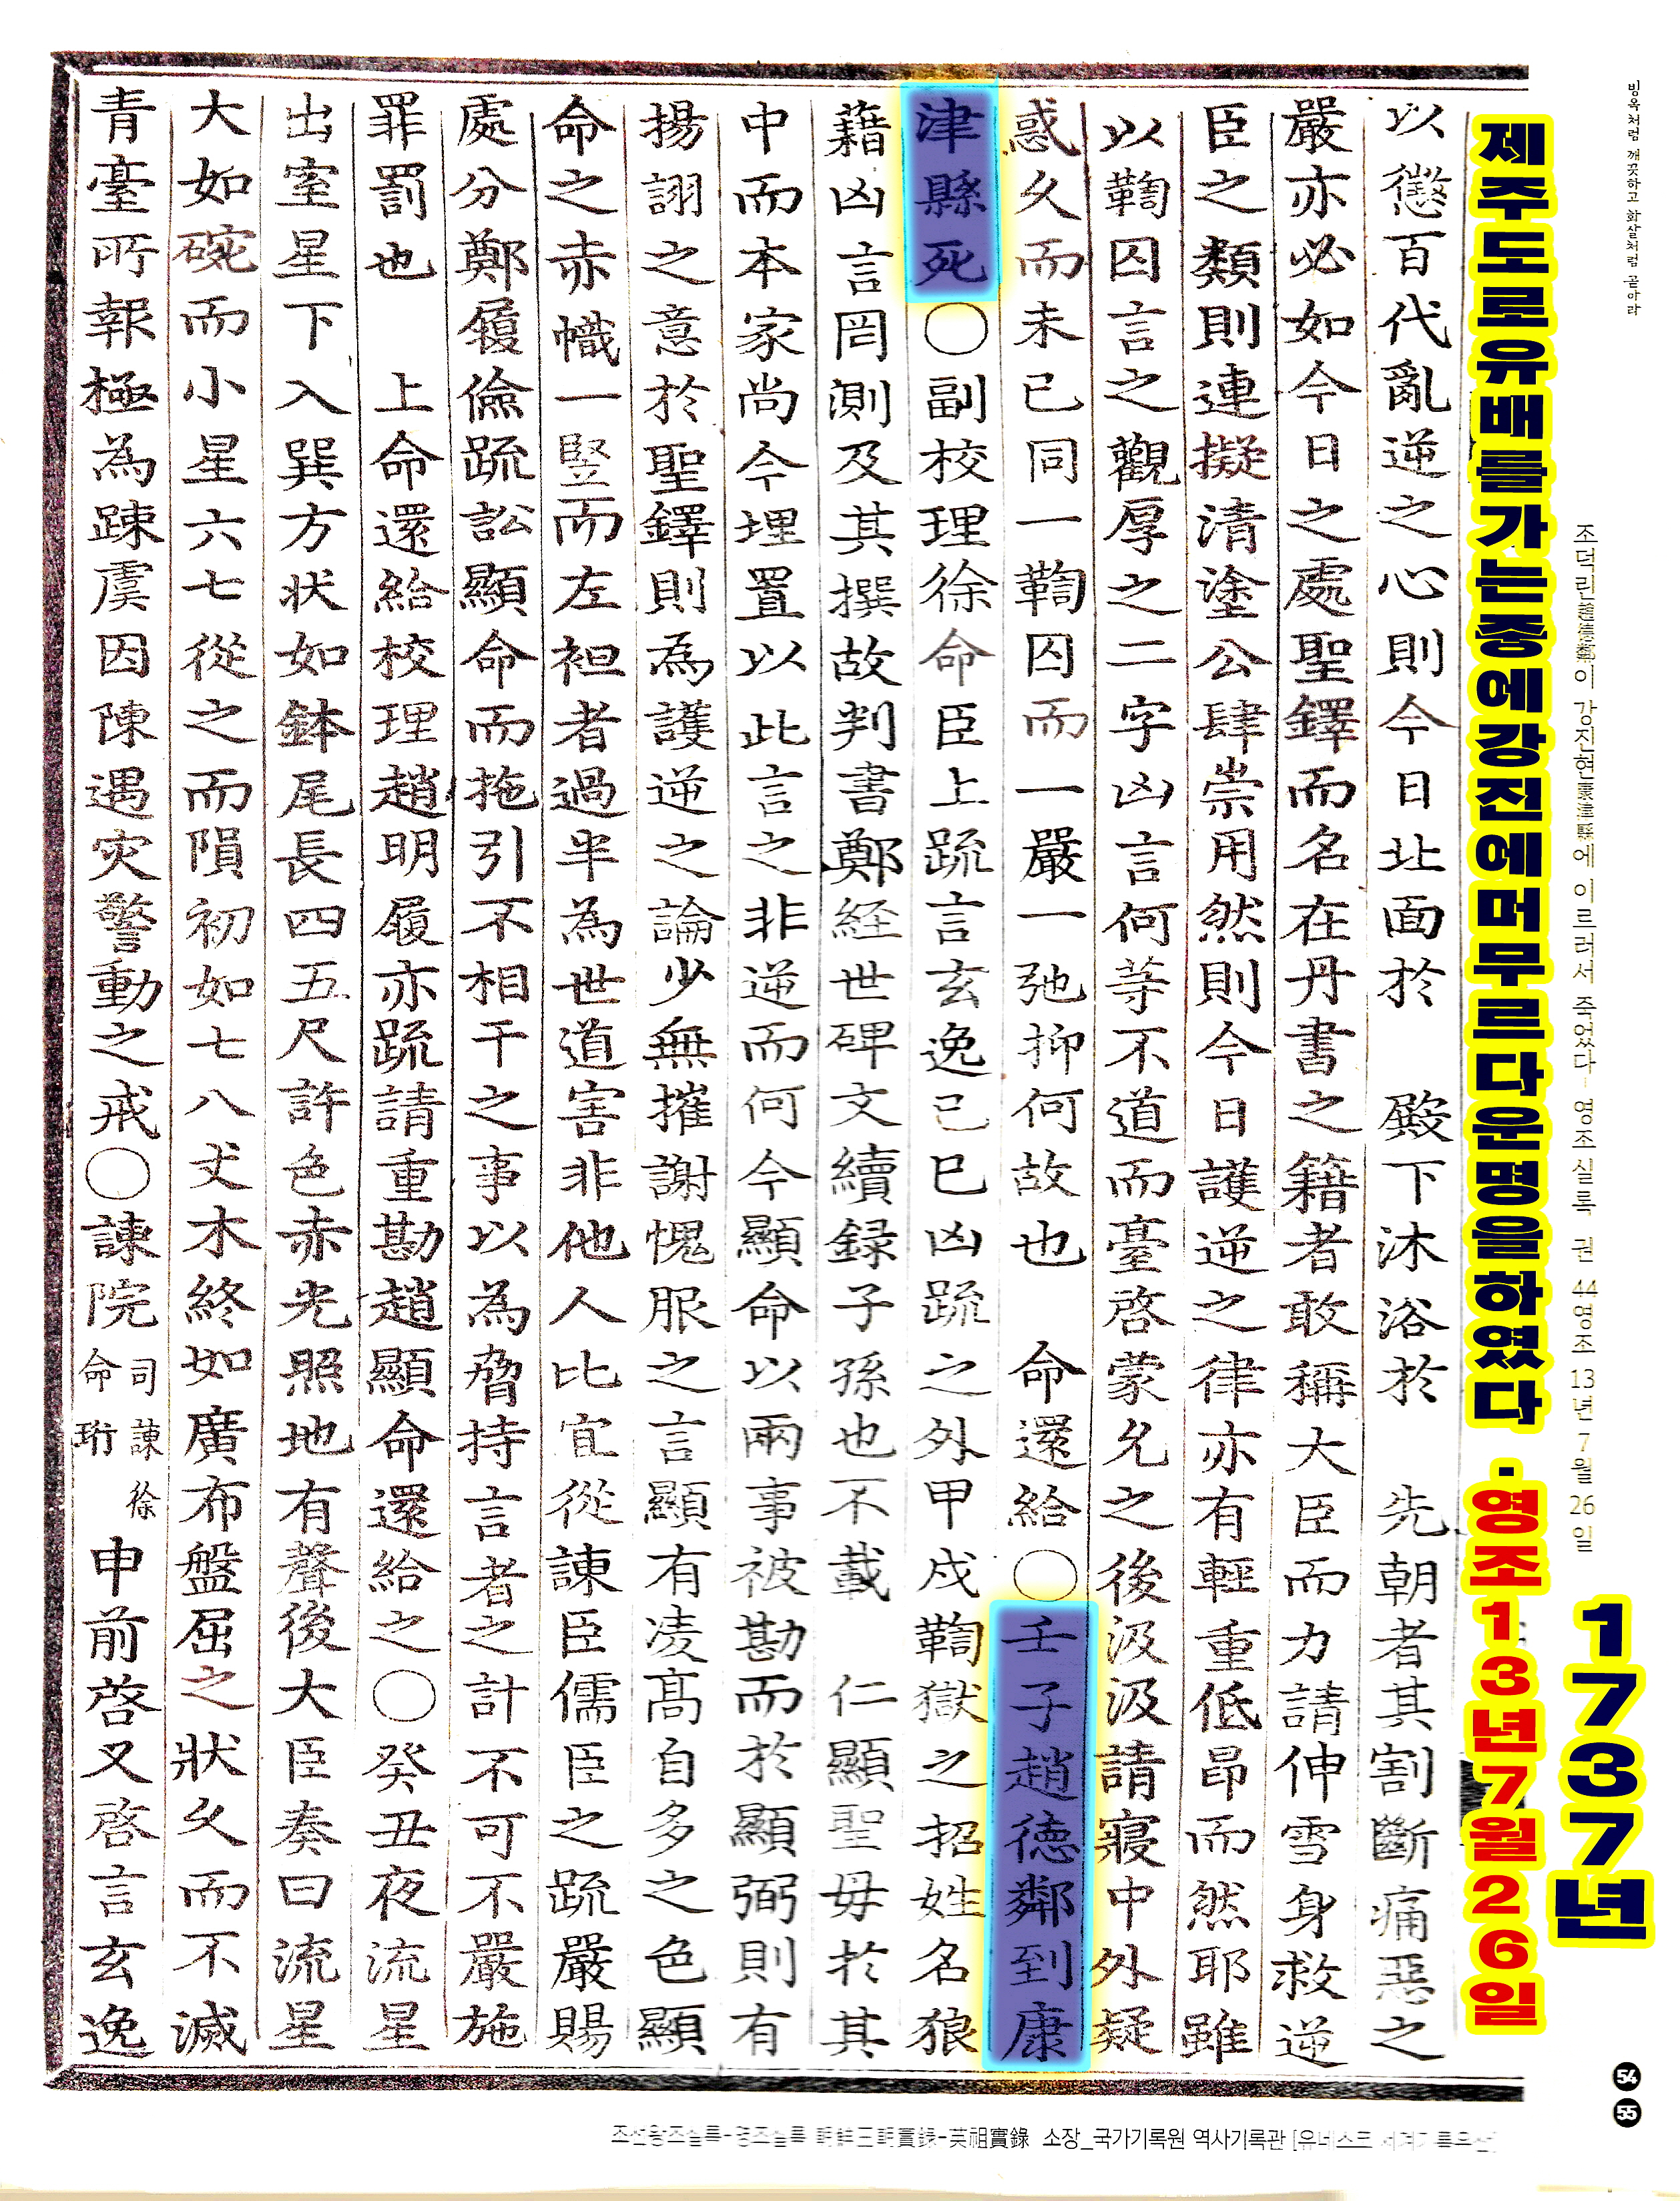 빙옥처럼 깨끗하고 화살처럼 곧아라
조덕린趙德鄰이 강진현康津縣에 이르러서 죽었다 - 영조실록 권 44 영조 13년 7월 26일
1737년
54
55
제주도로유배를가는중에강진에머무르다운명을하였다 · 영조13년7월26일
以懲百代亂逆之心則今日北面於 殿下沐浴於 先朝者其割斷痛惡之
嚴亦必如今日之處聖鐸而名在丹書之籍者敢稱大臣而力請伸雪身救逆
臣之類則連擬清塗公肆崇用然則今日護逆之律亦有輕重低昂而然耶雖
以鞫囚言之觀厚之二字凶言何等不道而臺啓蒙允之後汲汲請寢中外疑
惑久而未已同一鞫囚而一嚴一弛抑何故也 命還給○壬子趙德鄰到康
津縣死○副校理徐命臣上疏言玄逸己巳凶疏之外甲戌鞫獄之招姓名狼
藉凶言罔測及其撰故判書鄭経世碑文續録子孫也不載 仁顯聖毋於其
中而本家尚今埋置以此言之非逆而何今顯命以兩事被勘而於顯弼則有
揚詡之意於聖鐸則為護逆之論少無摧謝愧服之言顯有凌髙自多之色顯
命之赤幟一竪而左袒者過半為世道害非他人比宜從諫臣儒臣之疏嚴賜
處分鄭履儉疏訟顯命而拖引不相干之事以為脅持言者之計不可不嚴施
罪罰也 上命還給校理趙明履亦疏請重勘趙顯命還給之○癸丑夜流星
出室星下入巽方状如鉢尾長四五尺許色赤光照地有聲後大臣奏曰流星
大如碗而小星六七從之而隕初如七八丈木終如廣布盤屈之狀久而不滅
青臺所報極為踈虞因陳遇灾警動之戒○諫院司諫徐命珩申前啓又啓言玄逸
조선왕조실록-영조실록 朝鮮王朝實錄-英祖實錄 소장_국가기록원 역사기록관 [유네스코 세계기록유산]